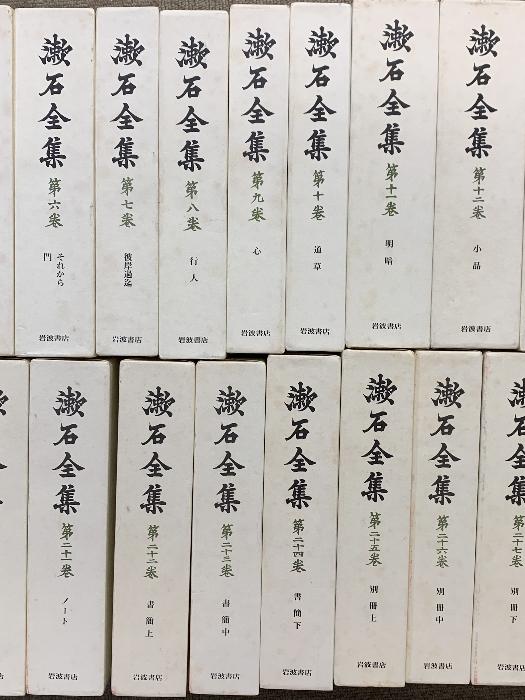 漱石全集
第六卷
それから
門
岩波書店
漱石全集
第七卷
彼岸過迄
岩波書店
漱石全集
第八卷
行人
岩波書店
漱石全集
第九卷
心
岩波書店
漱石全集
第十卷
道草
岩波書店
漱石全集
第十一卷
明暗
岩波書店
漱石全集
第十二卷
小品
岩波書店
漱石全集
第二十一卷
ノート
岩波書店
漱石全集
第二十二卷
書簡上
岩波書店
漱石全集
第二十三卷
書簡中
岩波書店
漱石全集
第二十四卷
書簡下
岩波書店
漱石全集
第二十五卷
別冊上
岩波書店
漱石全集
第二十六卷
別冊中
岩波書店
漱石全集
第二十七卷
別冊下